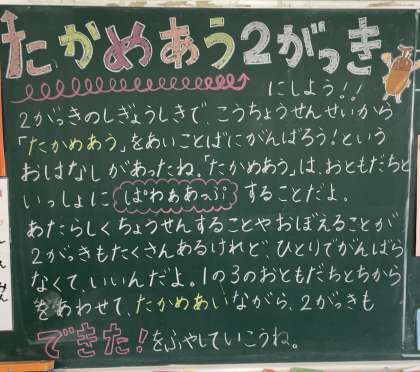 たかめあう2がっき
にしよう!!
2がっきのしぎょうしきで、こうちょうせんせいから
「たかめあう」をあいことばにがんばろう!という
おはなしがあったね。「たかめあう」は、おともだちと
いっしょに ぱわぁあっぷ することだよ。
あたらしくちょうせんすることやおぼえることが
2がっきもたくさんあるけれど、ひとりでがんばら
なくて、いいんだよ。1の3のおともだちとちから
をあわせて、たかめあいながら、2がっきも
できた!をふやしていこうね。